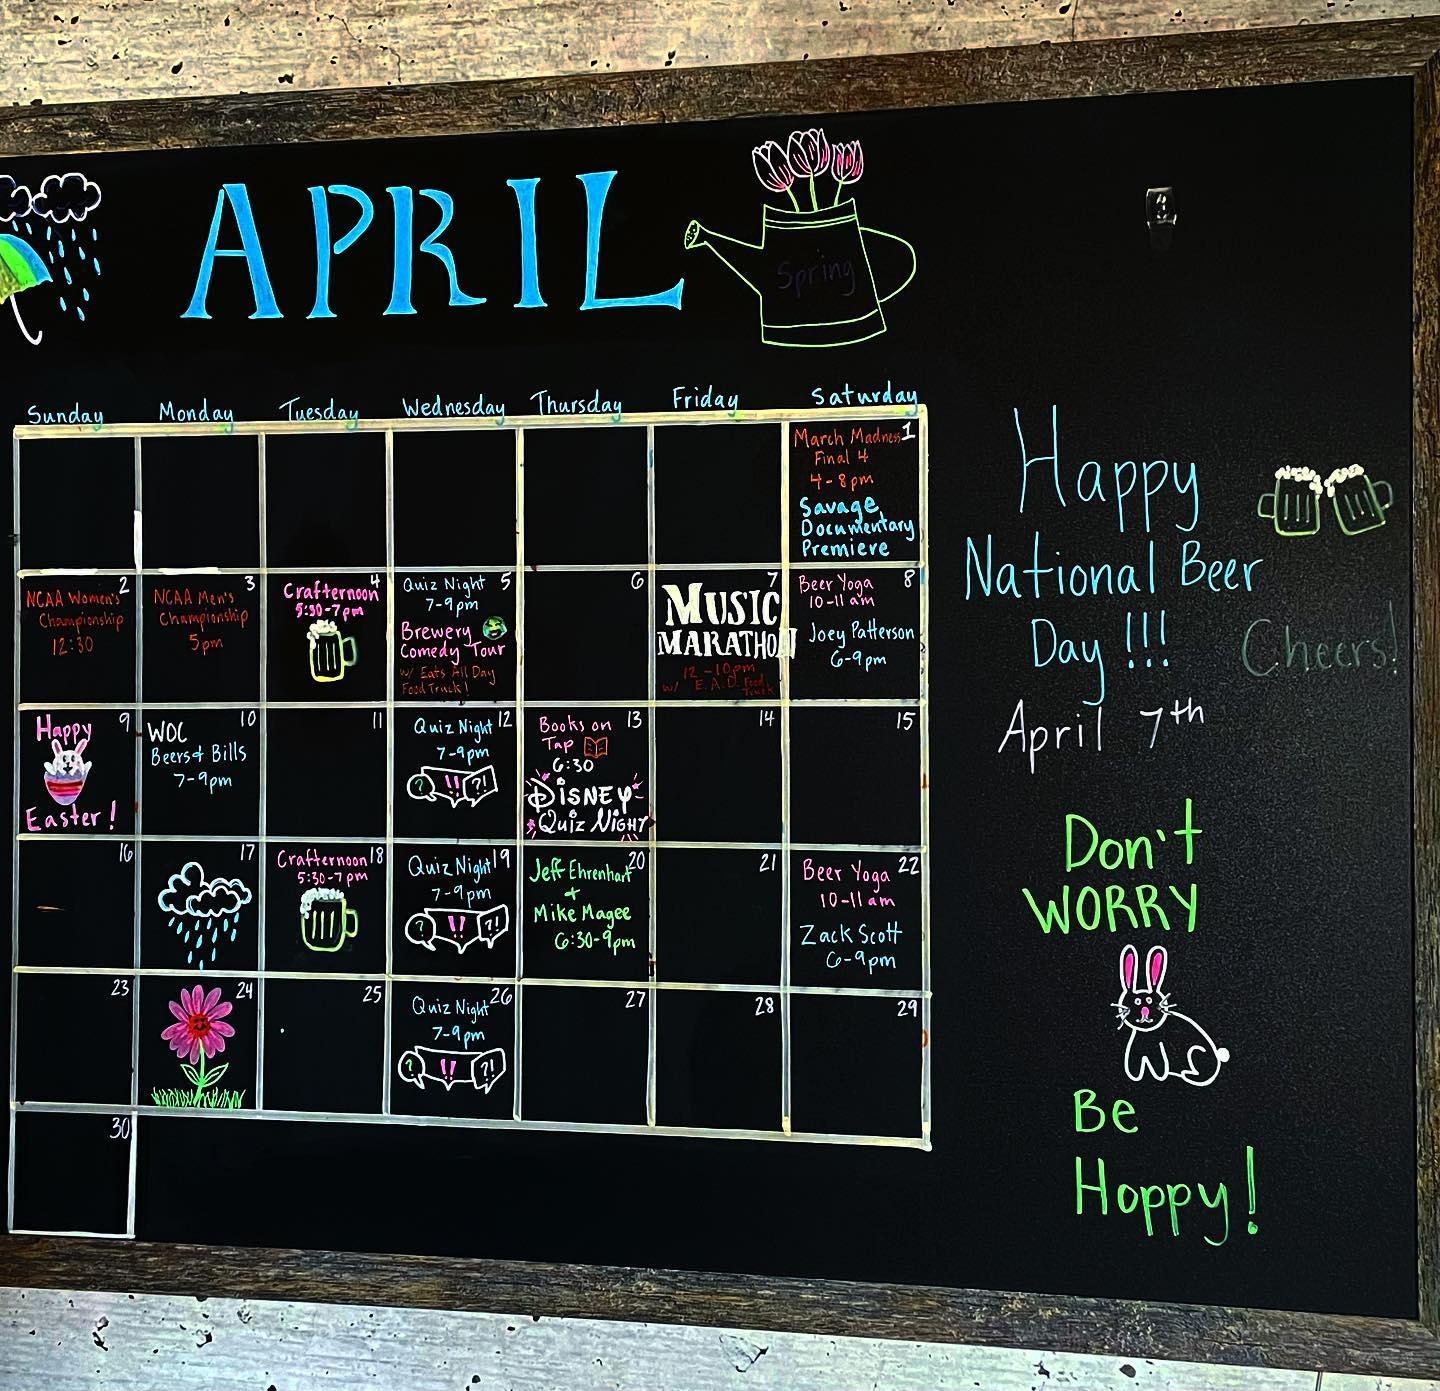 APRIL
Spring
Sunday Monday Tuesday Wednesday Thursday Friday Saturday
1
March Madness
Final 4
4-8pm
Savage
Documentary
Premiere
2
NCAA Women's
Championship
12:30
3
NCAA Men's
Championship
5pm
4
Crafternoon
5:30-7pm
5
Quiz Night
7-9pm
Brewery
Comedy Tour
w/ Eats All Day
Food Truck!
6
7
MUSIC
MARATHON
12-10pm
w/ E.A.D. Food
Truck
8
Beer Yoga
10-11am
Joey Patterson
6-9pm
9
Happy
Easter!
10
WOC
Beers & Bills
7-9pm
11
12
Quiz Night
7-9pm
? !! ?!
13
Books on
Tap
6:30
DISNEY
Quiz NIGHT
14
15
16
17
18
Crafternoon
5:30-7pm
19
Quiz Night
7-9pm
? !! ?!
20
Jeff Ehrenhart
+
Mike Magee
6:30-9pm
21
22
Beer Yoga
10-11am
Zack Scott
6-9pm
23
24
25
26
Quiz Night
7-9pm
? !! ?!
27
28
29
30
Happy
National Beer
Day !!!
Cheers!
April 7th
Don't
WORRY
Be
Hoppy!